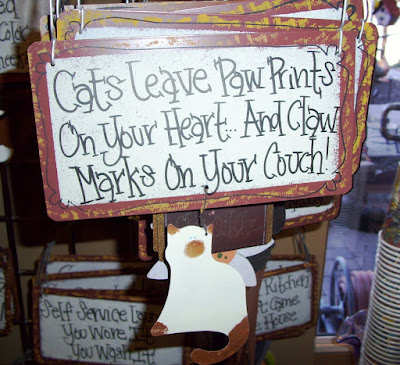 Cats Leave 'Paw' Prints
On Your Heart... And Claw
Marks On Your Couch!
Self Service
You Wore It
You Wash It
Kitchen
Came
House